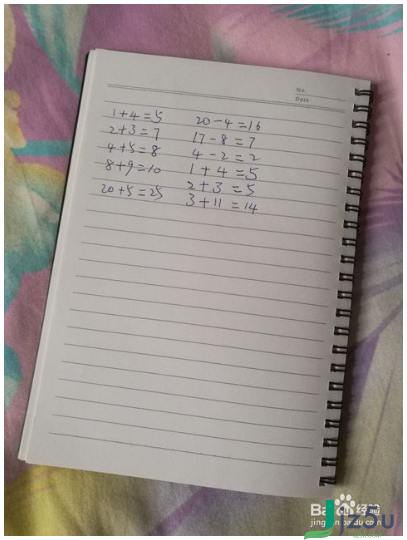 No.
Date
1+4=5
2+3=7
4+5=8
8+9=10
20+5=25
20-4=16
17-8=7
4-2=2
1+4=5
2+3=5
3+11=14
Bai 经验
jingyan.baidu.com
JZOU